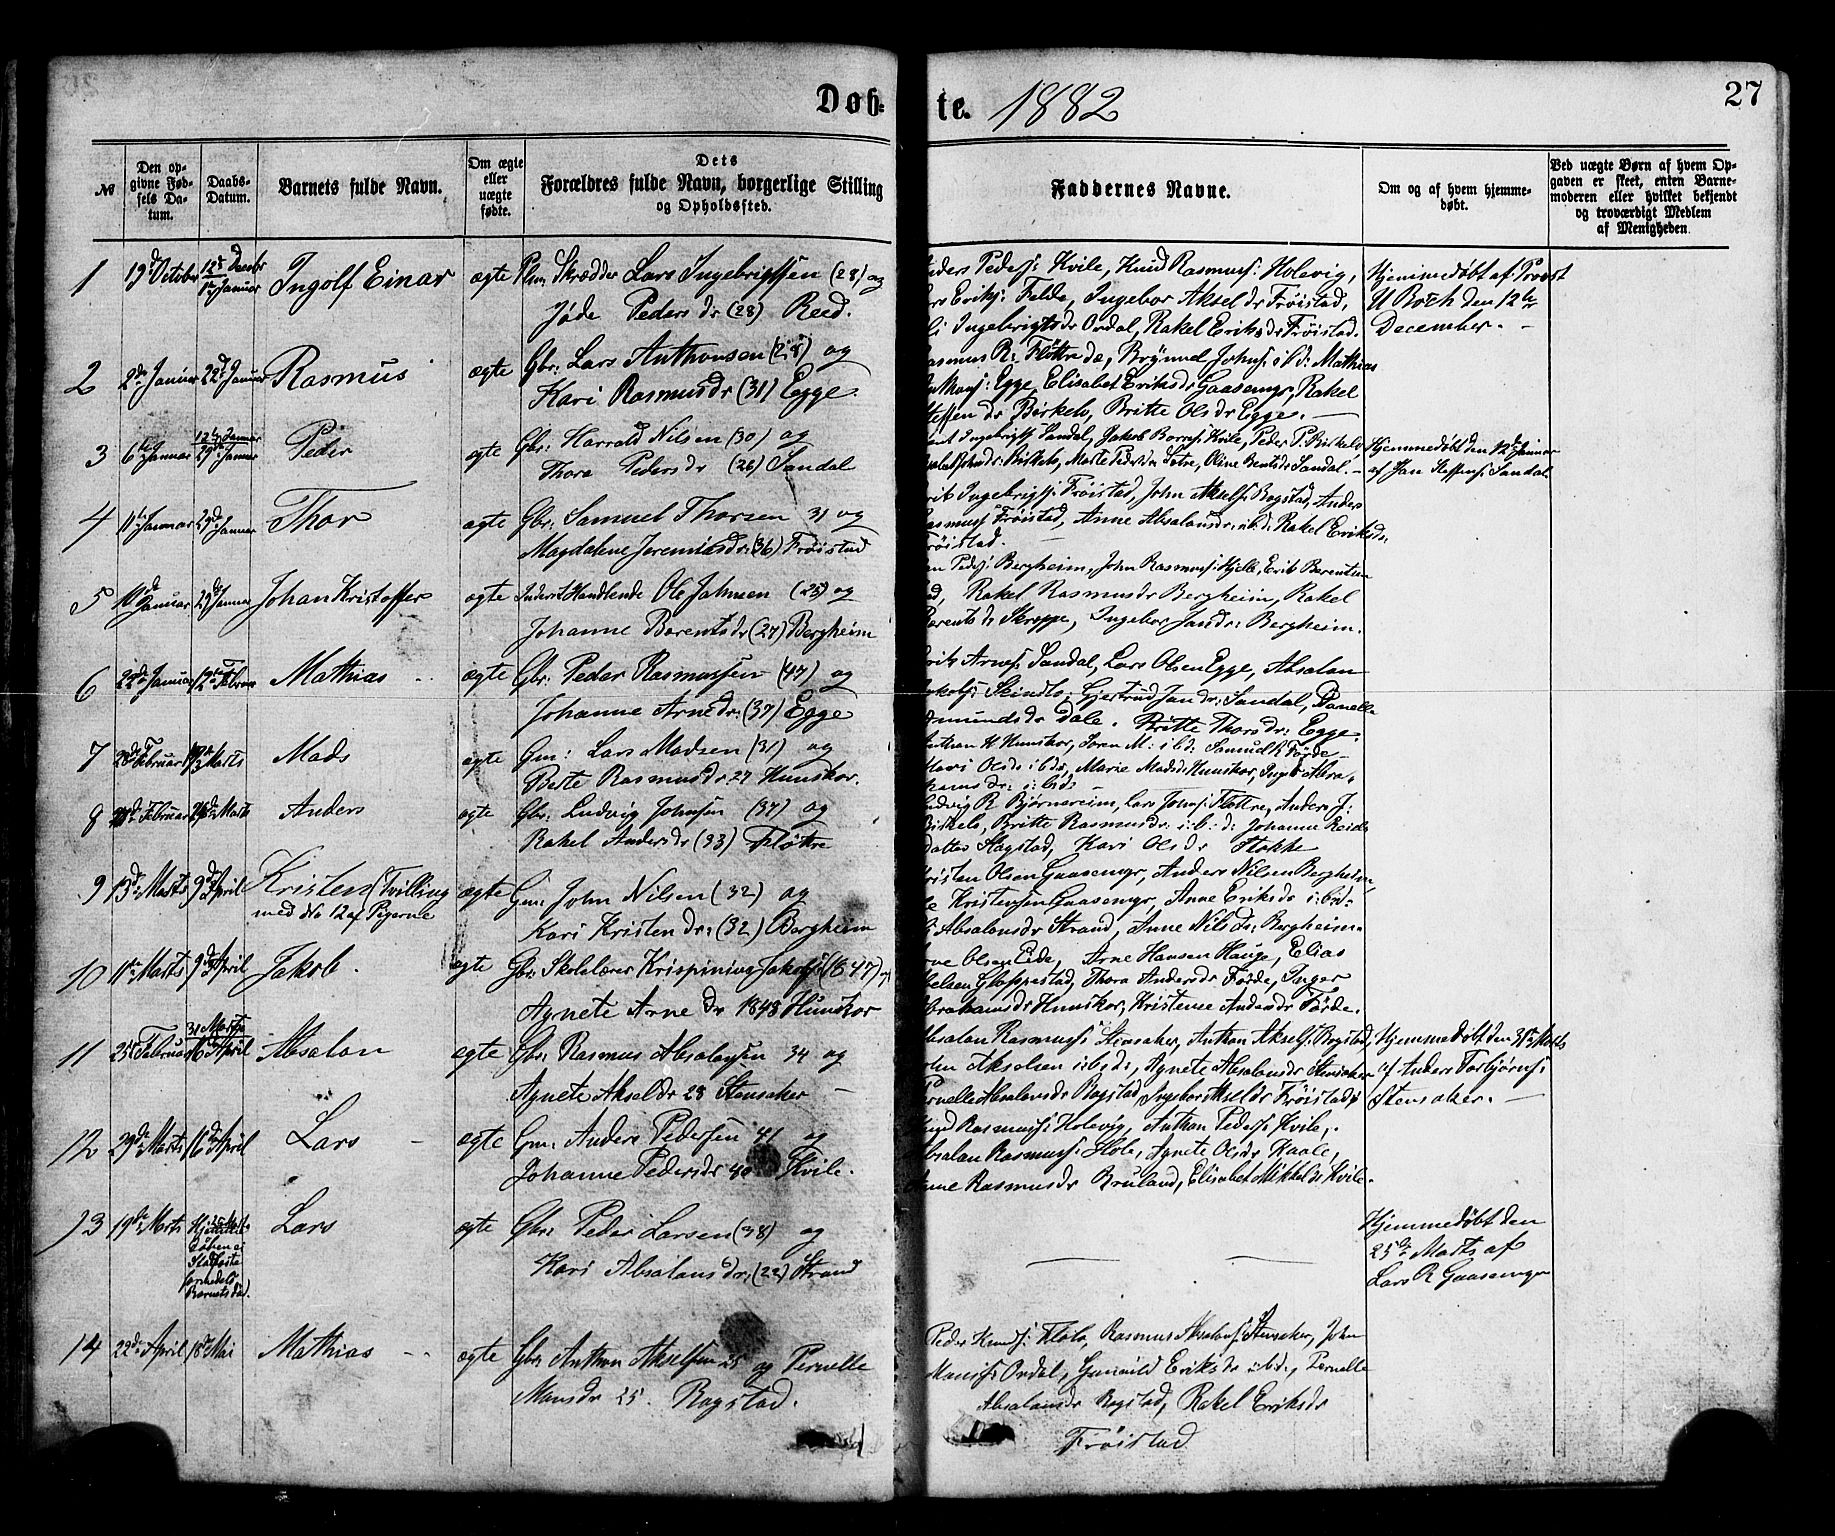 Døb-
te. 1882
27
№
Den op-
givne Fød-
sels Da-
tum.
Daabs-
Datum.
Barnets fulde Navn.
Om ægte
eller
uægte
fødte.
Dets
Forældres fulde Navn, borgerlige Stilling
og Opholdssted.
Faddernes Navne.
Om og af hvem hjemme-
døbt.
Ved uægte Børn af hvem Op-
gaven er skeet, enten Barne-
moderen eller hvilket bekjendt
og troværdigt Medlem
af Menigheden.
1 19de October Januar Ingolf Einar ægte Skrædder Lars Ingebrigtsen (28) og
Peders dr (28) Reed.
Anders Peders: Kvile, Knud Rasmus: Holevig,
Eriks: Felde, Ingebor Aksel dr Frøistad,
Ingebrigtsdr Ordal, Rakel Eriks dr Frøistad.
Hjemmedøbt af Provst
Boch den 12te
December. -
2 2den Januar 22de Januar Rasmus ægte Gbr: Lars Anthonsen (28) og
Kari Rasmusdr (31) Egge.
Rasmus R: Fløttre de, Brynnel Johns: i: b d: Mathias
Egge, Elisabet Eriksdr Gaasemyr, Rakel
Steffen dr Birkelo, Britte Olsdr Egge. -
3 6te Januar 12te Januar 29de Januar Peder ægte Gbr: Harrald Nilsen (30) og
Thora Pedersdr (26) Sandal
Ingebrigts: Sandal, Jakob Kvile, Peder P. Birkelo
Birkelo, Marte Pedersdr Sætre, Oline Bentsdr Sandal. -
Hjemmedøbt den 12te Januar
af Jan Steffens: Sandal
4 11te Januar 29de Januar Thor ægte Gbr: Samuel Thorsen 31 og
Magdalene Jeremiasdr: (36) Frøistad
Erik Ingebrigts: Frøistad, John Aksels: Bogstad, Anders
Rasmus: Frøistad, Anne Absalonsdr: i: b d: Rakel Eriksdr:
Frøistad.
5 10de Januar 29de Januar Johan Kristoffer ægte Inderst Handlende Ole Johnsen (25) og
Johanne Barentsdr (27) Bergheim
Peders: Bergheim, John Rasmus: Hjelle, Erik Barentsen
Rakel Rasmusdr Bergheim, Rakel
Barentsdr Skreppe, Ingebor Jansdr: Bergheim.
6 22de Januar 12te Februar Mathias ægte Gbr: Peder Rasmussen (47) og
Johanne Arnedr: (37) Egge
Arnes: Sandal, Lars Olsen Egge, Absalon
Jakobs: Gjertrud Jansdr: Sandal, Danelle
Amundsdr Dale. Britte Thorsdr: Egge.
7 Februar Marts Mads ægte Gm: Lars Madsen (31) og
Berte Rasmusdr 27 Hunskor.
Anthon H Hunskor, Søren M: i b d: Samuel R Førde
Kari Olsdr i: b d:, Marie Madsdr Hunskor, Inger Abra-
hamsdr: i: b d:
8 Februar Marts Anders ægte Gbr: Ludvig Johnsen (37) og
Rakel Andersdr (33) Fløttre
Ludvig R Bjørnereim, Lars Johns: Fløttre, Anders J:
Birkelo, Britte Rasmusdr: i: b: d: Johanne Reids
datter Sagstad, Kari Olsdr Stokke
9 13de Marts 9de April Kristen (Tvilling
med No 12 af Pigerne
ægte Gm. John Nilsen (32) og
Kari Kristen dr: (32) Bergheim
Kristen Olsen Gaasemyr, Anders Nilsen Bergheim,
Kristensen Gaasemyr, Anne Eriksdr i: b d.
Absalonsdr Strand, Anne Nilsdr: Bergheim.
10 11te Marts 9de April Jakob. ægte Gbr: Skolelærer Krispinius Jakobs: (1847) og
Agnete Arne dr 1848 Hunskor
Arne Olsen Eide, Arne Hansen Hauge, Elias
Gloppestad, Thora Andersdr Førde, Inger
Abrahamsdr Hunskor, Kristense Andersdr Førde.
11 25de Februar 31 Marts 16de April Absalon ægte Gbr: Rasmus Absalonsen 34 og
Agnete Akseldr 28 Stensaker -
Absalon Rasmus: Stensaker, Anthon Aksels: Bogstad,
John Akselsen i: b d:, Agnete Absalonsdr Stensaker
Pernelle Absalonsdr Bogstad, Ingebor Akseldr Frøistad,
Hjemmedøbt den 31te Marts
af Anders Torbjørns:
Stensaker. -
12 29de Marts 16de April Lars - ægte Gm: Anders Pedersen 41 og
Johanne Pedersdr 40 Kvile.
Knud Rasmus: Holevig, Anthon Peders: Kvile,
Absalon Rasmus: Hole, Agnete Olsdr Kaale,
Anne Rasmusdr Bruland, Elisabet Mikkelsdr Kvile.
13 19de Marts Lars ægte Gbr: Peder Larsen (38) og
Kari Absalonsdr: (22) Strand
Hjemmedøbt den
25de Marts af
Lars R Gaasemyr
14 22de April 18de Mai Mathias - - ægte Gbr: Anthon Akselsen 25 og Pernelle
Monsdr 25. Bogstad.
Peder Knuds: Flølo, Rasmus Absalons: Stensaker, John
Monsis: Ordal, Gunnild Eriksdr i: b d:, Pernelle
Absalonsdr Bogstad, Rakel Eriksdr
Frøistad